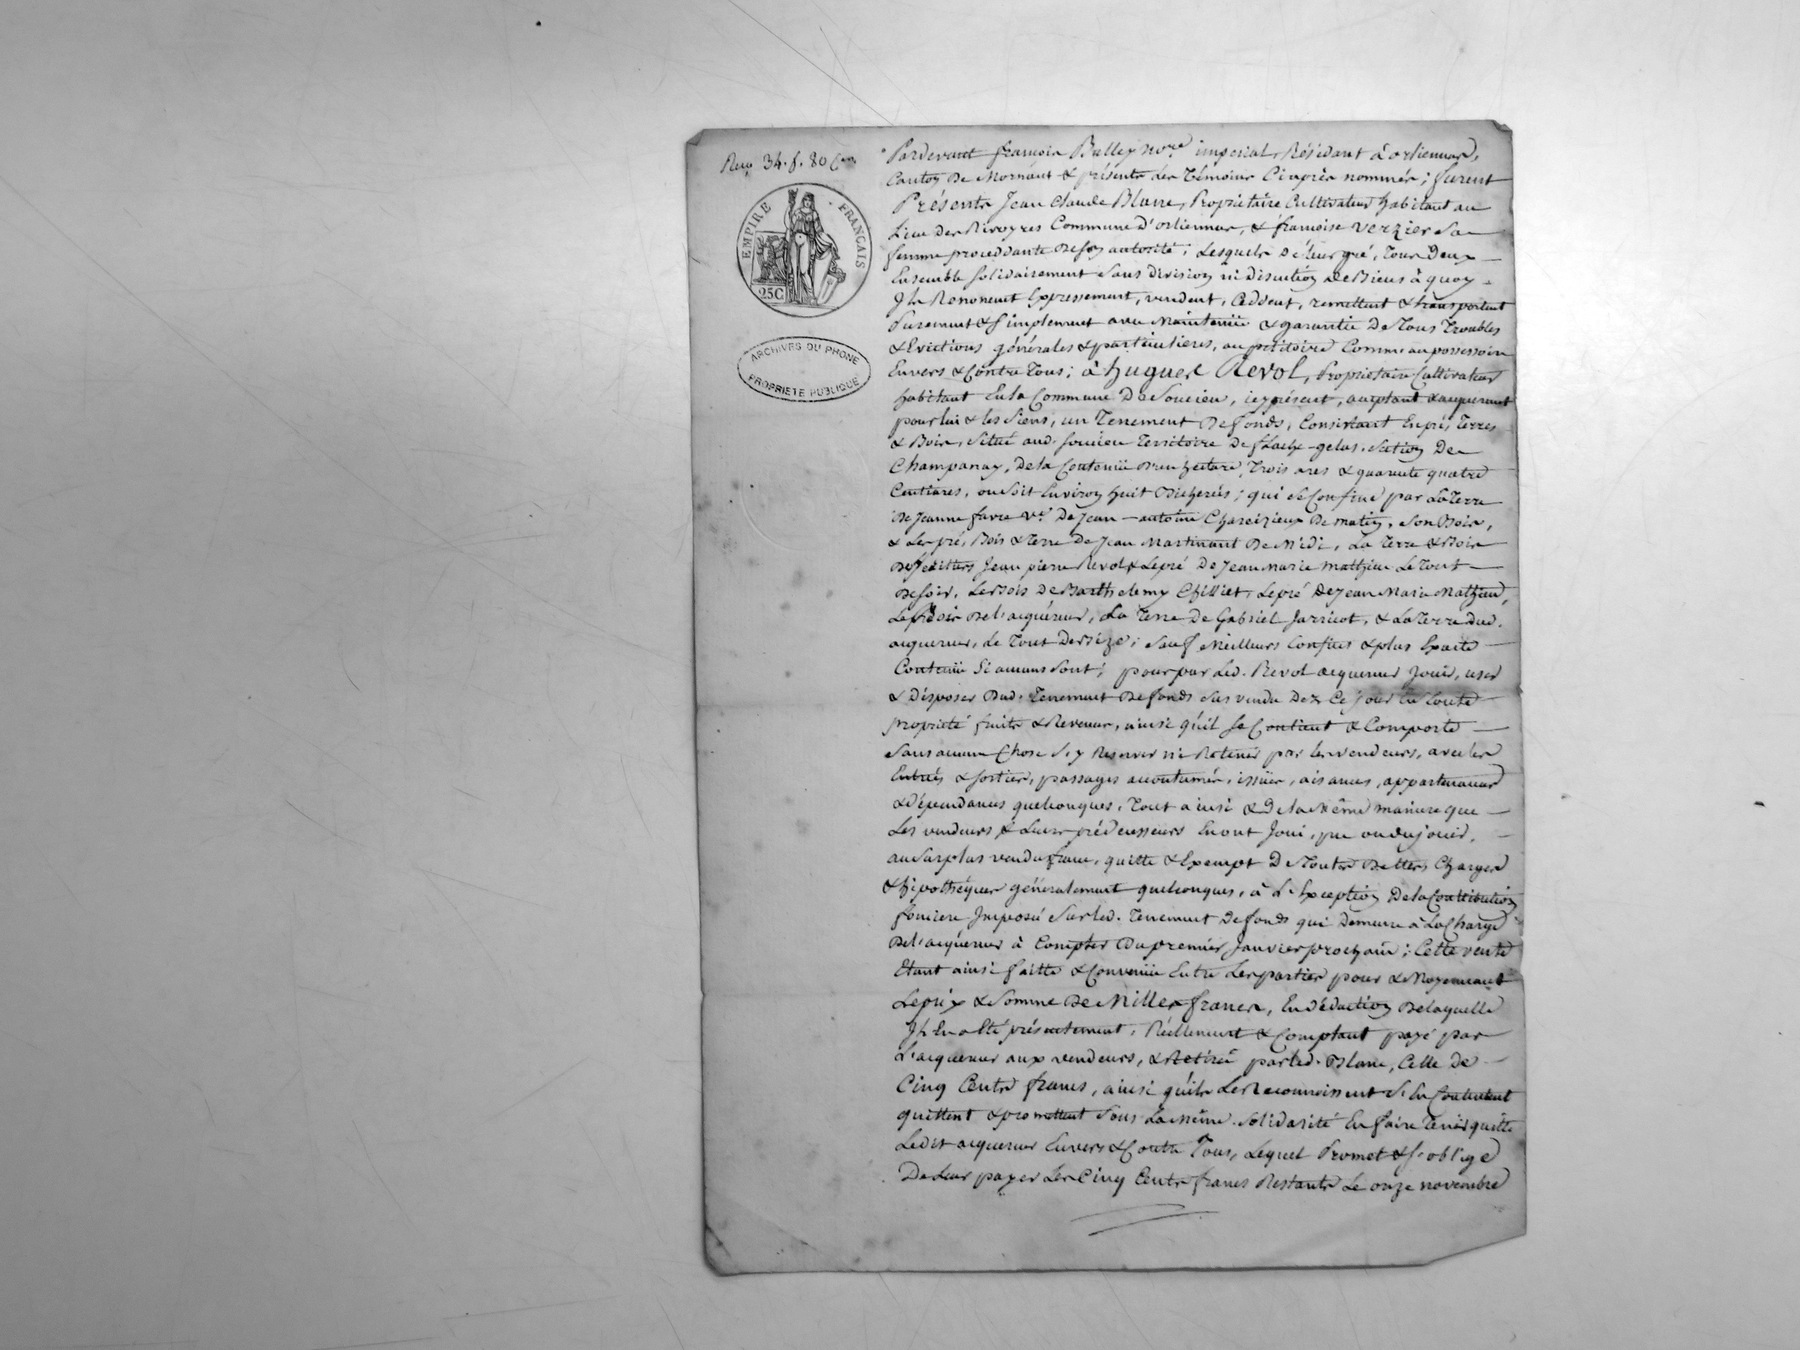 Reçu 34. f. 80 Cen
EMPIRE FRANÇAIS
25C
ARCHIVES DU RHONE
PROPRIETE PUBLIQUE
Pardevant françois Balley no.re imperial, Résidant à orlienas,
Canton De Mornant & présents des Témoins Ciaprès nommés; furent
Présents Jean Claude Blanc, Propriétaire Cultivateur habitant au
Lieu des Rivoyres Commune d'orlienas, & françoise Verzier Sa
femme proceddante De son autorité; Lesquels De leur gré, Tous Deux
Ensemble solidairement sans Division ni Discution De Biens à quoy
Ils Renoncent Expressement, vendent, Céddent, remettent & transportent
Purement & simplement avec Maintenüe & garantie De Tous Troubles
& Evictions générales & particulieres, au petitoire Comme au possessoire
Envers & Contre Tous; à hugues Revol, Proprietaire Cultivateur
habitant En la Commune De Soucieu, icy présent, acceptant & acquerant
pour lui & les Siens, un Tenement De fonds, Consistant En pré, Terres
& Bois, Situé aud. Soucieu Territoire De flache-gelas, Section De
Champanay, De la Contenüe D'un hectare, Trois ares & quarante quatre
Centiares, ou Soit Environ huit Bicherées; qui se Confine par La Terre
De Jeanne favre v.e De Jean-antoine Charezieux De matin, Son Bois,
& Les pré, Bois & Terre De Jean Martinant De Midi, La Terre & Bois
Des héritiers Jean pierre Revol & Le pré De Jean Marie Mathieu Le Tout
De soir, Le Bois De Barthelemy Chilliet, Le pré De Jean Marie Mathieu,
Le Bois De l'acquéreur, La Terre De Gabriel Jarricot, & La Terre dud.
acquereur, Le Tout De bize; Sauf Meilleurs Confins & plus Exacte
Contenüe Si aucuns Sont; pour par Led. Revol acquereur Jouir, user
& Disposer Dud. Tenement De fonds Sus vendu Dez Ce jour En toute
propriété fruits & Revenus, ainsi qu'il Se Contient & Comporte
Sans aucune Chose S'y Reserver ni Retenir par les vendeurs, avec les
Entrées & sorties, passages accoutumés, issües, aisances, appartenances
& Dépendances quelconques, Tout ainsi & De la Même maniere que
Les vendeurs & Leurs prédecesseurs En ont Joui, pu ou du jouir,
au Surplus vendu franc, quitte & Exempt De Toutes Dettes Charges
& hipothéques généralement quelconques, à L'Exception De la Contribution
fonciere Imposée Sur led. Tenement De fonds qui Demeure à La Charge
De L'acquéreur à Compter Du premier Janvier prochain; Cette vente
Etant ainsi faitte & Convenüe Entre Les parties pour & Moyennant
Le prix & Somme De Mille francs, En déduction De laquelle
Il En a Eté présentement, Réellement & Comptant payé par
L'acquereur aux vendeurs, & Retiré par led. Blanc, Celle De
Cinq Cents francs, ainsi qu'ils Le Reconnoissent S'En Contentent
quittent & promettent Sous La Même Solidarité En faire Tenir quitte
Ledit acquereur Envers & Contre Tous, Lequel Promet & S'oblige
De Leur payer Les Cinq Cents francs Restants Le onze novembre